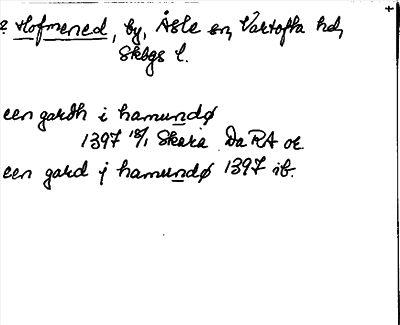 ? Hofmened, by, Åsle sn, Vartofta hd,
Skbgs l.
een gardh i hamundø
1397 18/1 Skara DaRA or.
een gard j hamundø 1397 ib.